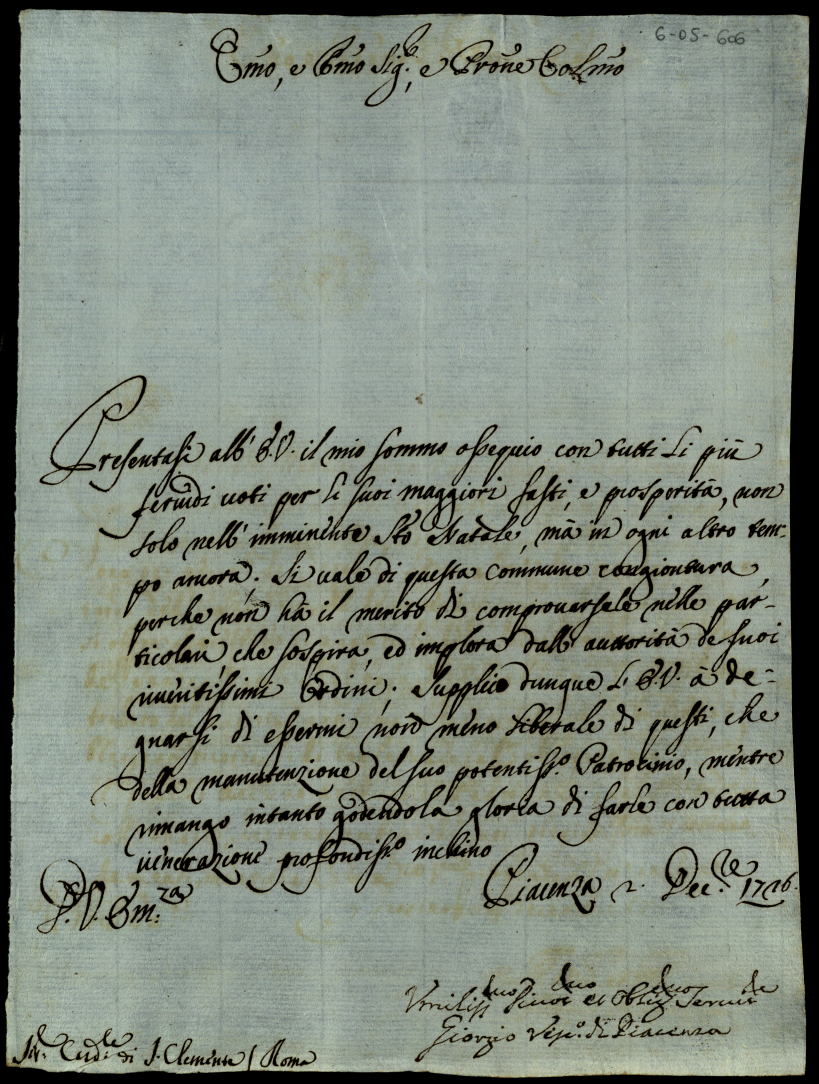 6-05-606
Emo, e Rmo Sig.re, e Prone Colmo
Presentasi all' E.V. il mio sommo ossequio con tutti li più
feruidi uoti per li suoi maggiori fasti, e prosperità, non
solo nell' imminente Sto Natale, mà in ogni altro tem-
po ancora. Si uale di questa commune congiontura,
perche non hà il merito di comprouarsele nelle par-
ticolari che sospira, ed implora dall' auttorità de suoi
riueritissimi Ordini. Supplico dunque l' E.V. à de-
gnarsi di essermi non meno liberale di questi, che
della manutenzione del suo potentiss.o Patrocinio, mentre
rimango intanto godendo la gloria di farle con tutta
uenerazione profondiss.o inchino
D. V. Em.za Piacenza 2. Dec.re 1726.
Vmiliss.mo Diuot.mo et Oblig.mo Seruit.
Giorgio Vesc.o di Piacenza
Card.le di S. Clemente / Roma